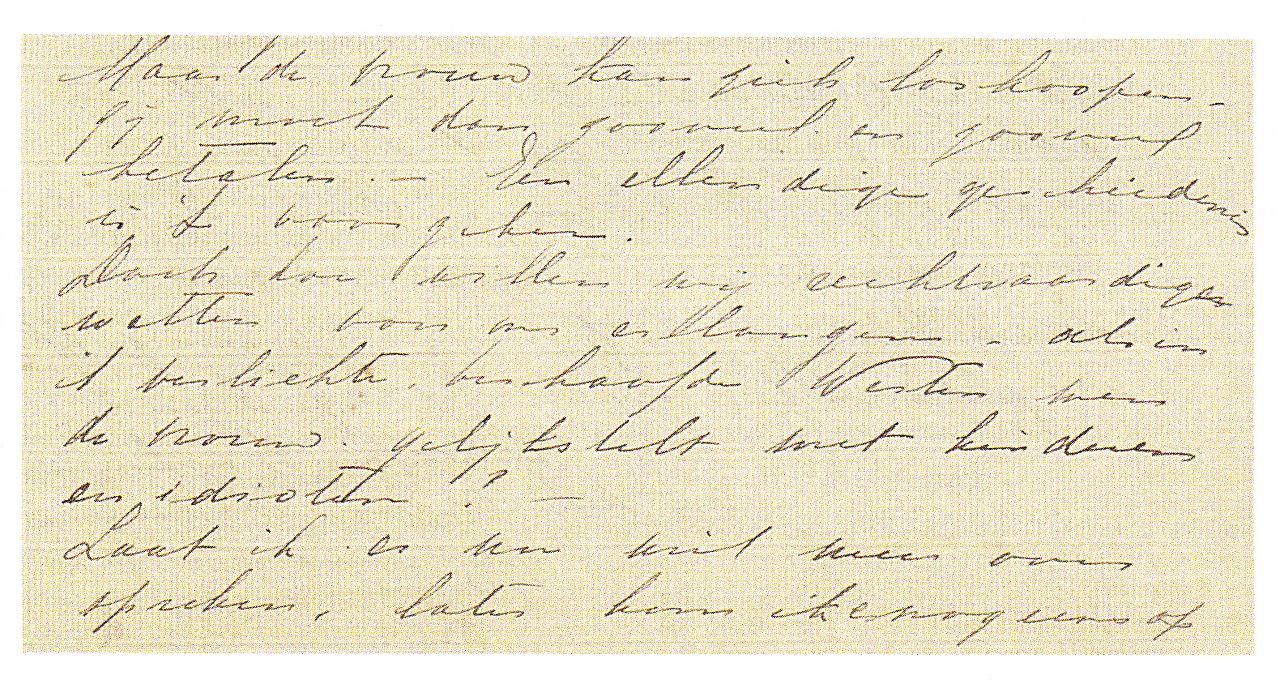 Maar de vrouw kan zich loskoopen -
zij moet dan zooveel en zooveel
betalen. — Een ellendige geschiedenis
is 't voor
Doch hoe willen wij rechtvaardige
wetten voor ons erlangen, als in
't verlichte, beschaafde Westen men
de vrouw gelijkstelt met kinderen
en idioten!? —
Laat ik er nu niet meer over
spreken, later kom ik er nog eens op